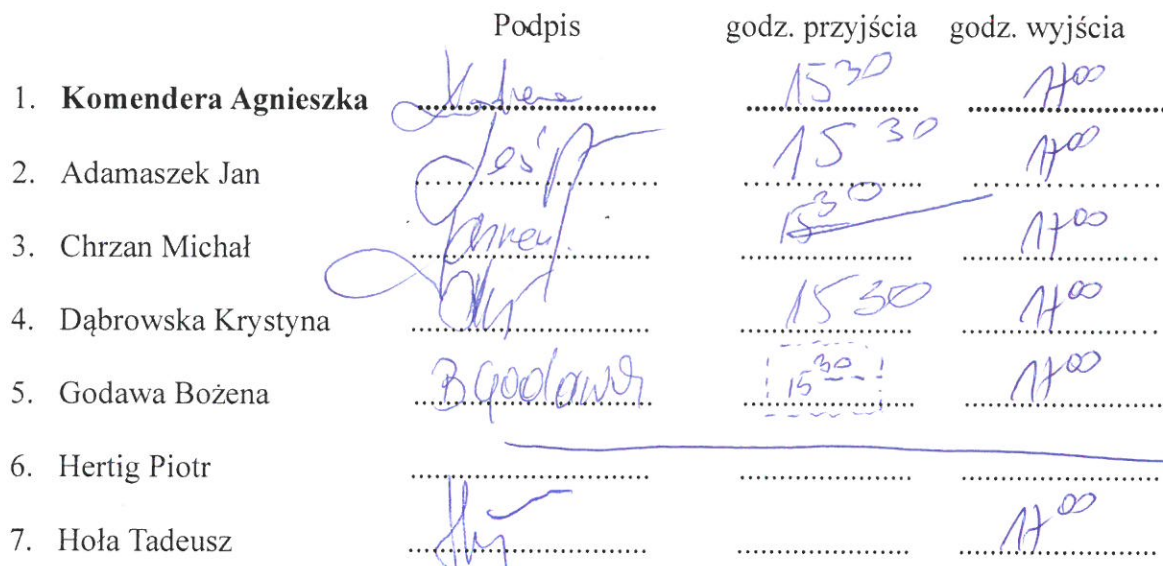 Podpis godz. przyjścia godz. wyjścia
1. Komendera Agnieszka 15 30 17 00
2. Adamaszek Jan 15 30 17 00
3. Chrzan Michał 15 30 17 00
4. Dąbrowska Krystyna 15 30 17 00
5. Godawa Bożena BGodawa 15 30 17 00
6. Hertig Piotr
7. Hoła Tadeusz 17 00